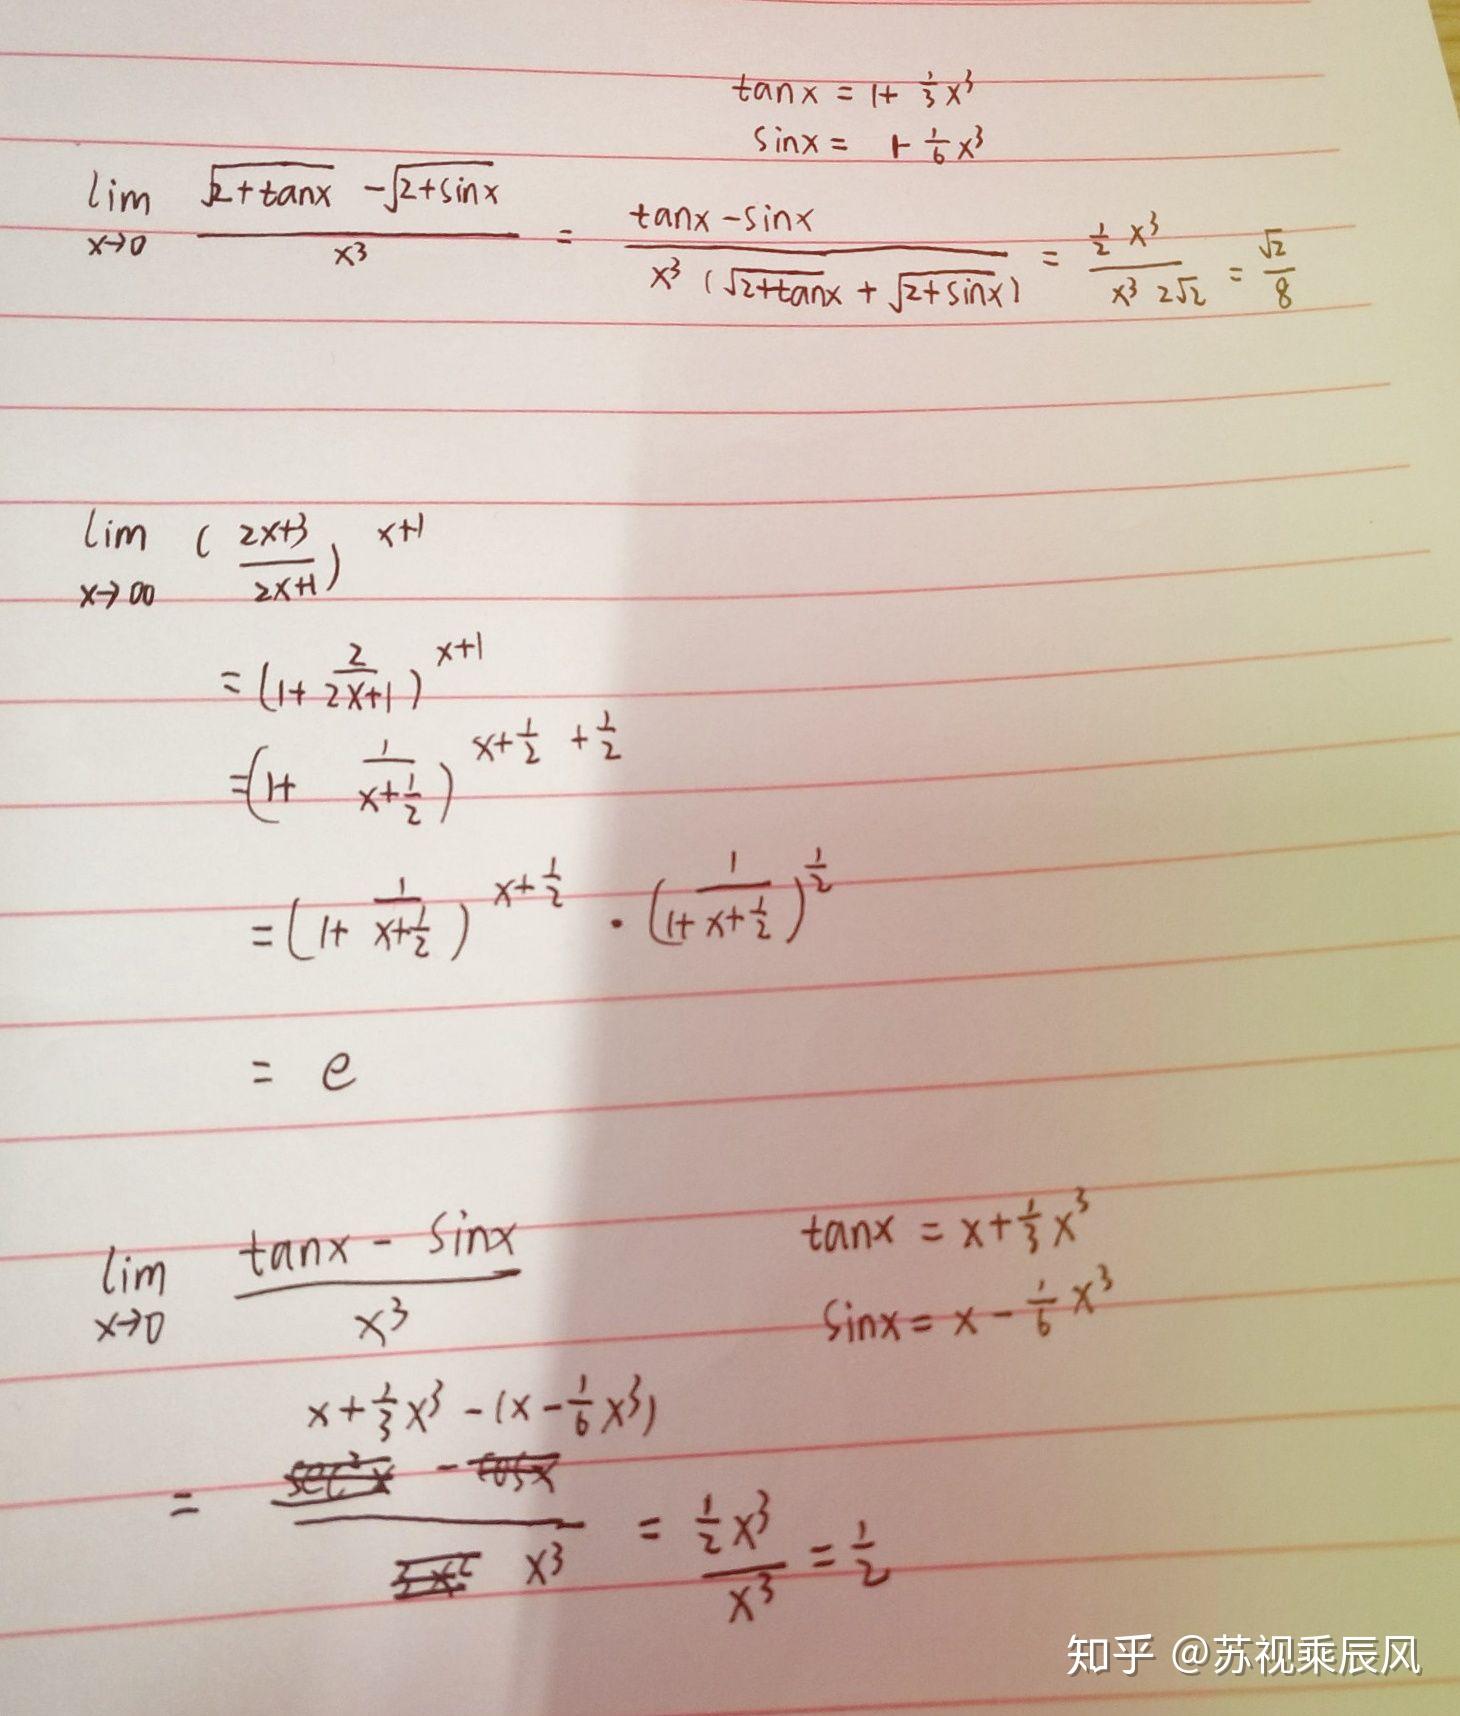 tanx = 1+ 1/3 x³
sinx = 1- 1/6 x³
lim x→0 (√(2+tanx) - √(2+sinx)) / x³ = (tanx - sinx) / (x³ (√(2+tanx) + √(2+sinx))) = (1/2 x³) / (x³ 2√2) = √2/8
lim x→∞ ((2x+3)/(2x+1))^(x+1)
= (1+ 2/(2x+1))^(x+1)
= (1+ 1/(x+1/2))^(x+1/2 +1/2)
= (1+ 1/(x+1/2))^(x+1/2) · (1/(1+x+1/2))^(1/2)
= e
lim x→0 (tanx - sinx) / x³
tanx = x+ 1/3 x³
sinx = x - 1/6 x³
= (x+ 1/3 x³ - (x - 1/6 x³)) / x³ = (1/2 x³) / x³ = 1/2
知乎 @苏视乘辰风